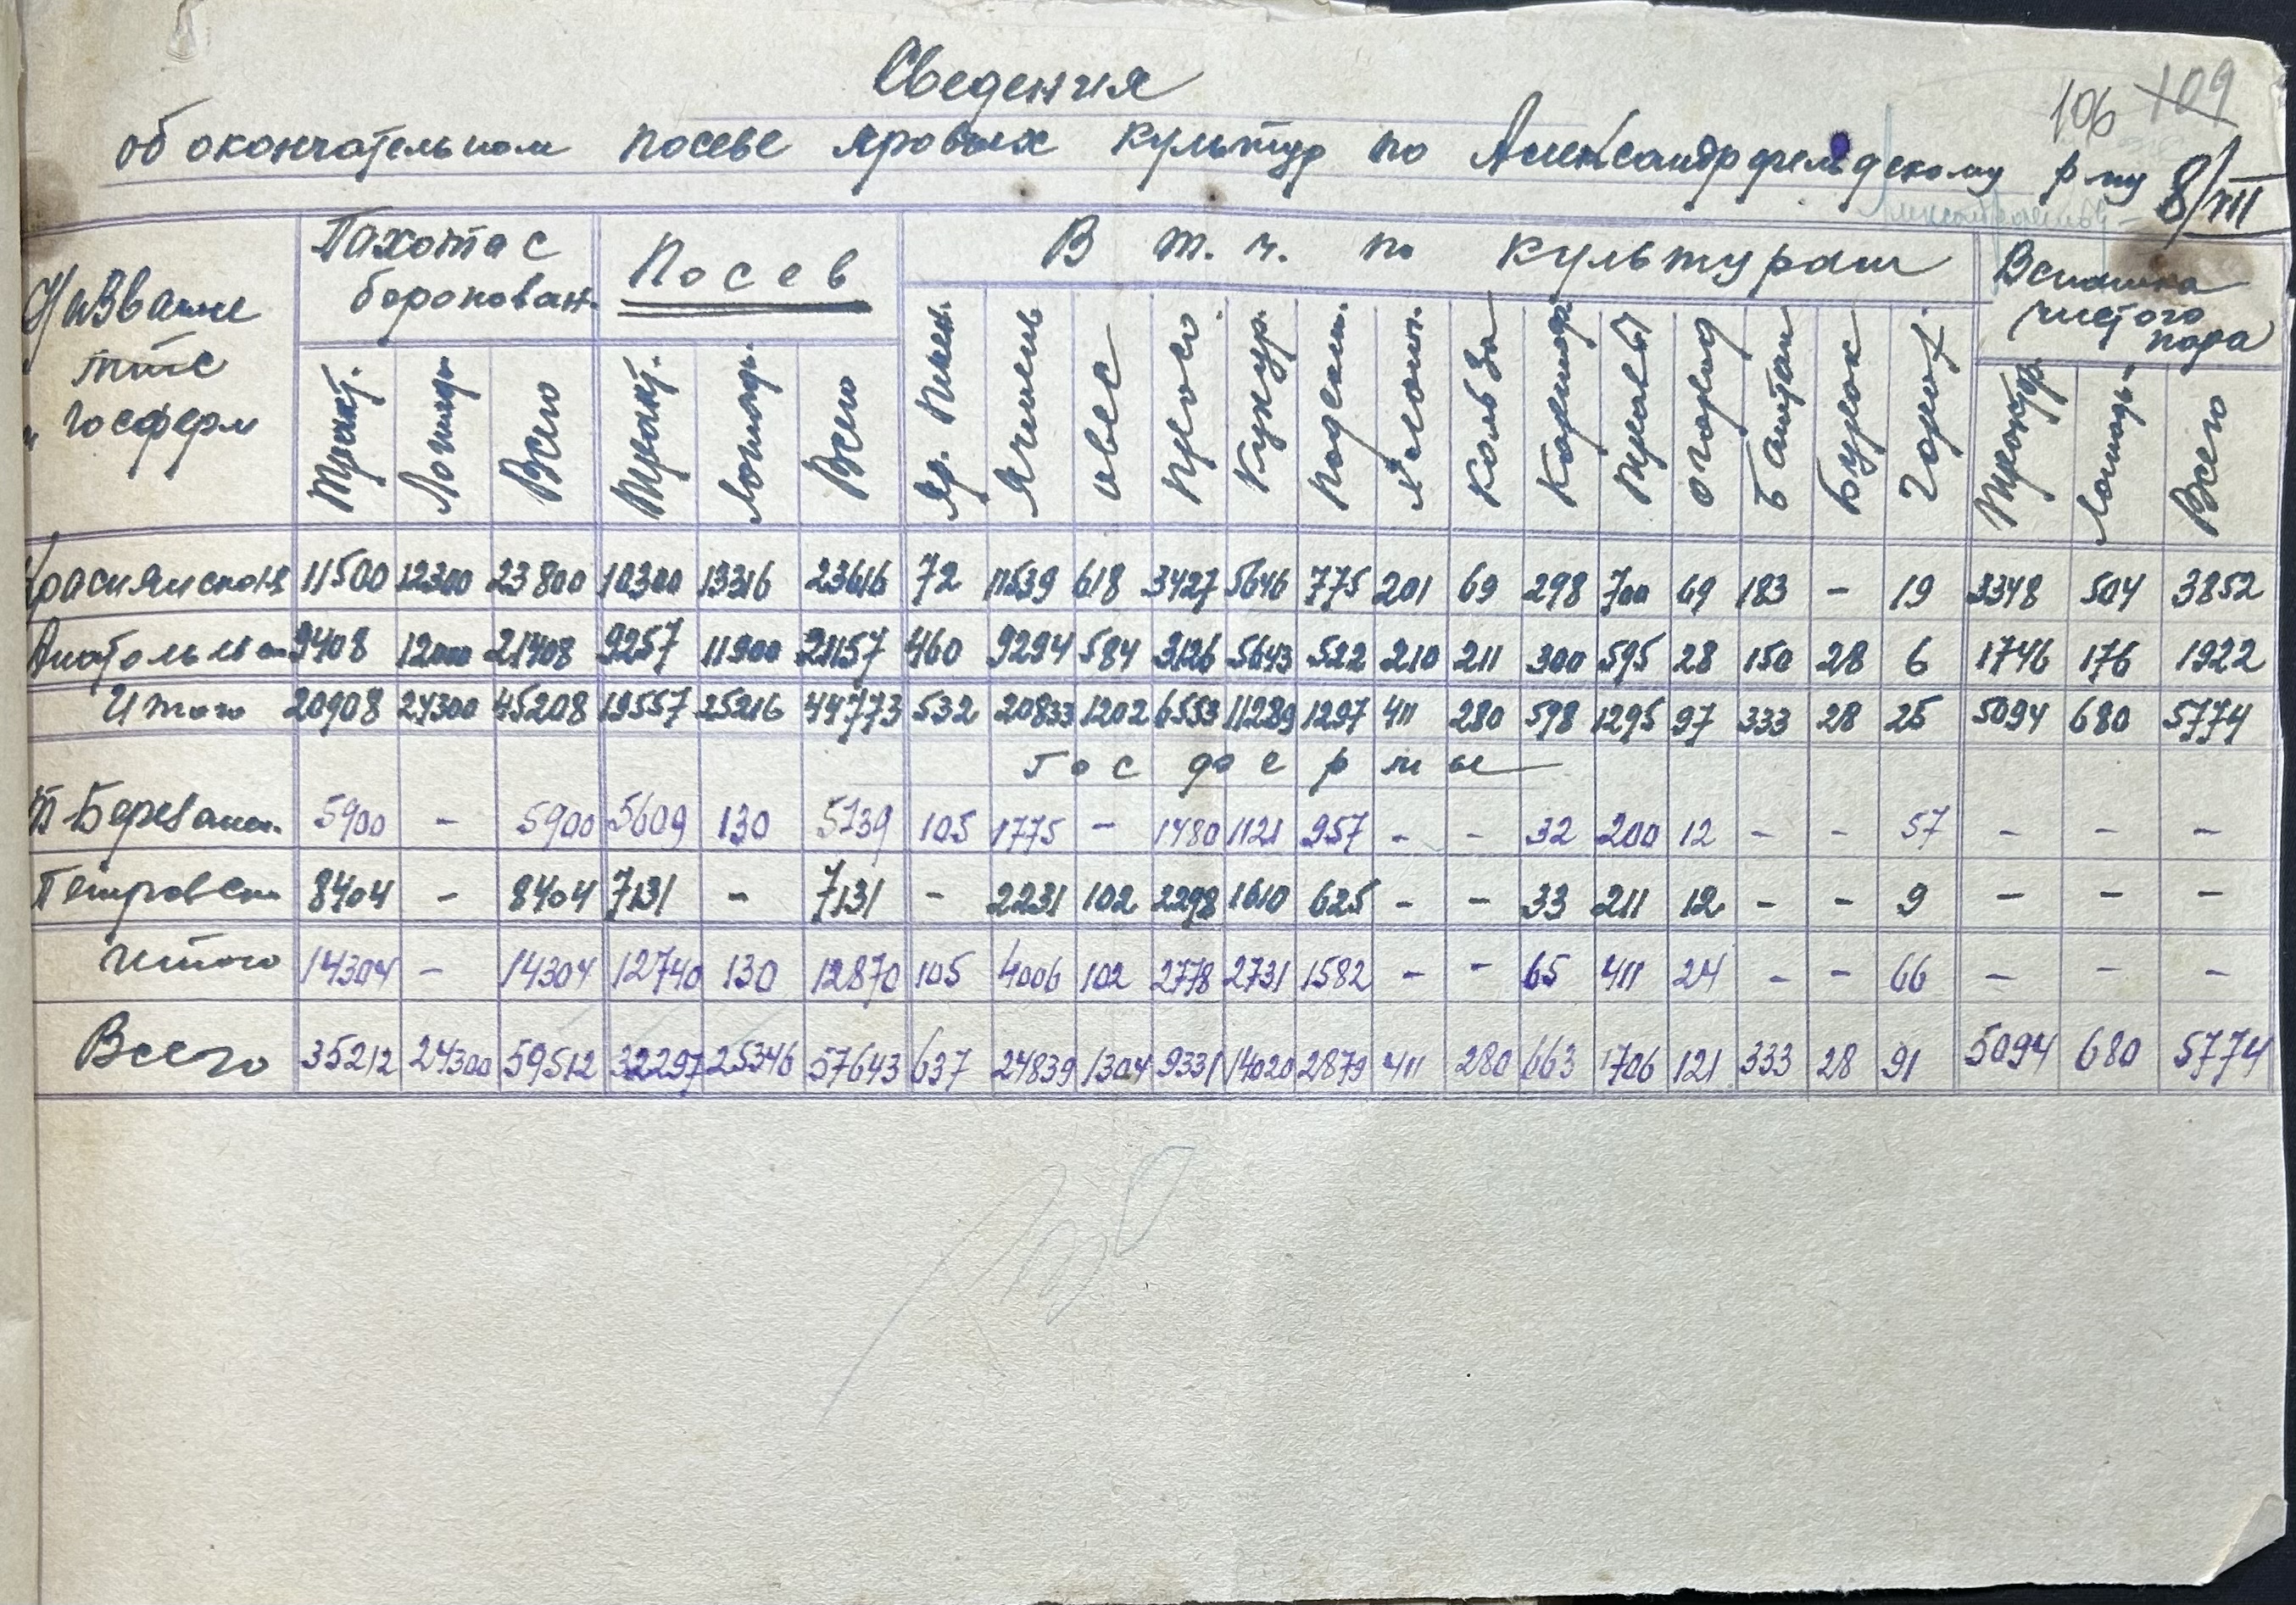 Сведения
об окончательном посеве яровых культур по Александрфельдскому р-ну
106 109
8/VII
Название мтс и госферм | Пахота с боронован. | Посев | В т. ч. по культурам | Вспашка чистого пара
Тракт. | Лошад. | Всего | Тракт. | Лошад. | Всего | Яр. Пшен. | Ячмень | Овес | Просо | Кукур. | Подсолн. | Хлопч. | Кольза | Кориандр | Травы | Огород | Баштан | Буряк | Горох | Трактор. | Лошадь | Всего
Краснянская | 11500 | 12300 | 23800 | 10300 | 13316 | 23616 | 72 | 11539 | 618 | 3427 | 5646 | 775 | 201 | 69 | 298 | 700 | 69 | 183 | - | 19 | 3348 | 504 | 3852
Анатольевск | 9408 | 12000 | 21408 | 9257 | 11900 | 21157 | 460 | 9294 | 584 | 3126 | 5643 | 522 | 210 | 211 | 300 | 595 | 28 | 150 | 28 | 6 | 1746 | 176 | 1922
Итого | 20908 | 24300 | 45208 | 19557 | 25216 | 44773 | 532 | 20833 | 1202 | 6553 | 11289 | 1297 | 411 | 280 | 598 | 1295 | 97 | 333 | 28 | 25 | 5094 | 680 | 5774
Госфермы
Т-Березан. | 5900 | - | 5900 | 5609 | 130 | 5739 | 105 | 1775 | - | 1480 | 1121 | 957 | - | - | 32 | 200 | 12 | - | - | 57 | - | - | -
Петровск | 8404 | - | 8404 | 7131 | - | 7131 | - | 2231 | 102 | 2298 | 1610 | 625 | - | - | 33 | 211 | 12 | - | - | 9 | - | - | -
Итого | 14304 | - | 14304 | 12740 | 130 | 12870 | 105 | 4006 | 102 | 2778 | 2731 | 1582 | - | - | 65 | 411 | 24 | - | - | 66 | - | - | -
Всего | 35212 | 24300 | 59512 | 32297 | 25346 | 57643 | 637 | 24839 | 1304 | 9331 | 14020 | 2879 | 411 | 280 | 663 | 1706 | 121 | 333 | 28 | 91 | 5094 | 680 | 5774